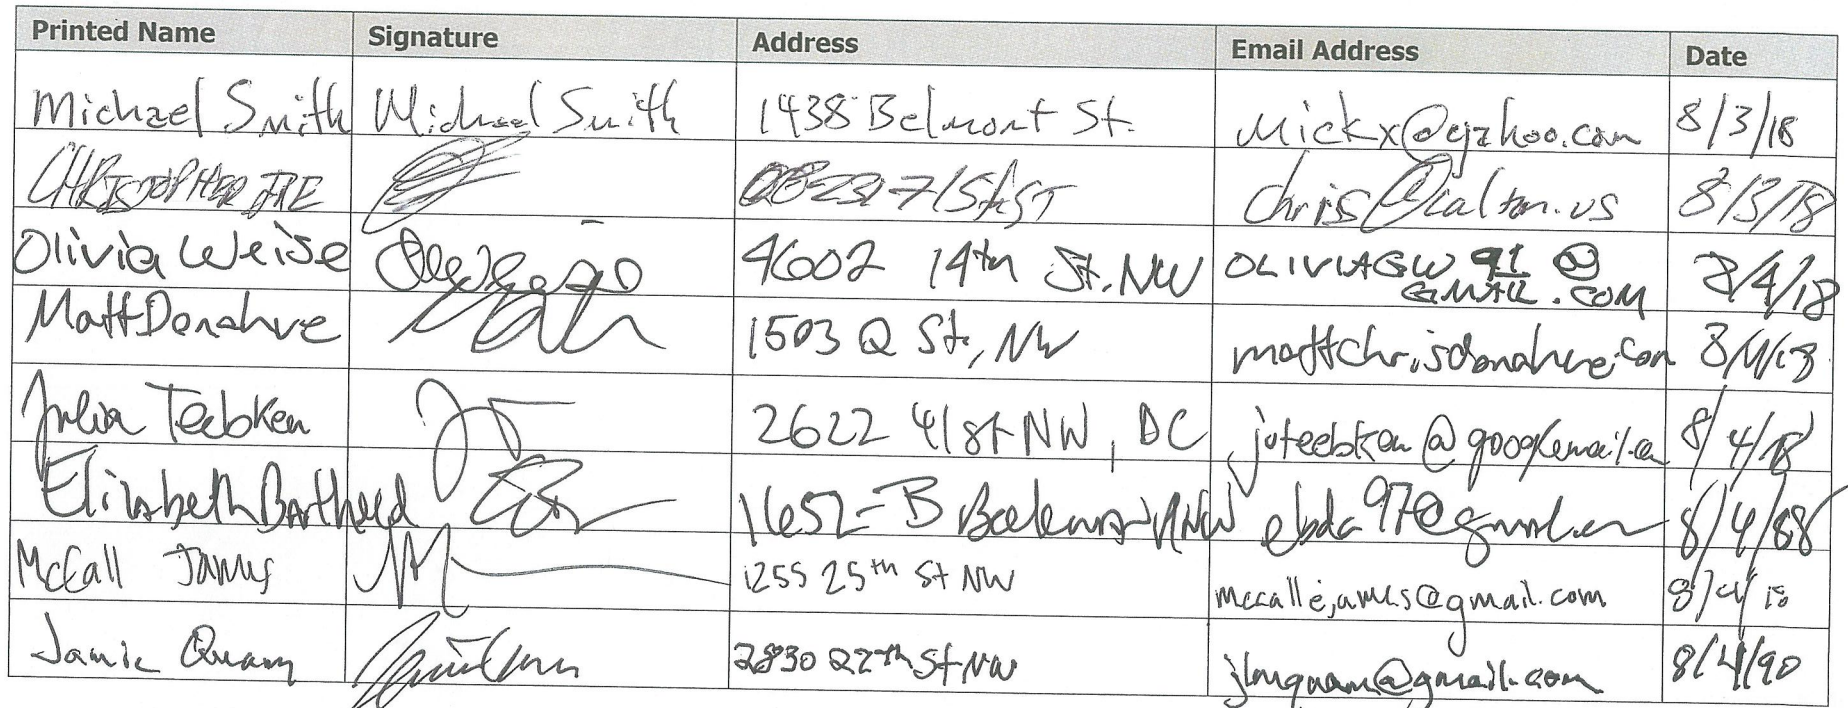 Printed Name Signature Address Email Address Date
Michael Smith Michael Smith 1438 Belmont St. Mickx@yahoo.com 8/3/18
CHRISTOPHER 71st ST 8/3/18
Olivia Weise 4602 14th St. NW OLIVIAGW91@
GMAIL.COM 8/4/18
Matt Donahue 1503 Q St, NW mattchrisdonahue.com 8/4/18
Julia Teebken 2622 41st NW, DC juteebken@googlemail.com 8/4/18
Elizabeth 1652-B NW 8/4/88
McCall James 1255 25th St NW mccallejames@gmail.com 8/4/18
Jamie Quam 2830 27th St NW jlmquam@gmail.com 8/4/90